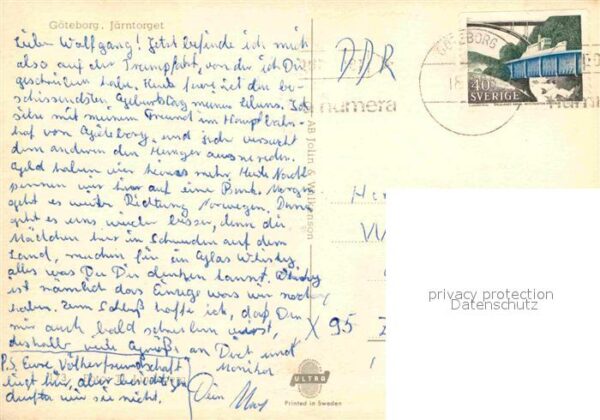 Göteborg. Järntorget
Lieber Wolfgang! Jetzt befinde ich mich
also auf der Trampfahrt, von der ich Dir
geschrieben habe. Heute feure ich den be-
schissendsten Geburtstag meines Lebens. Ich
sitze mit meinem Freund im Hauptbahn-
hof von Göteborg, und jeder versucht
dem anderen den Hunger auszureden.
Geld haben wir keines mehr. Heute Nacht
pennen wir hier auf eine Bank. Morgen
geht es weiter Richtung Norwegen. Dann
geht es uns wieder besser, denn die
Mädchen hier in Schweden auf dem
Land, machen für ein Glas Whisky
alles was Du Dir denken kannst. Whisky
ist nämlich das Einzige was wir noch
haben. Zum Schluß hoffe ich, daß Du
mir auch bald schreiben wirst,
deshalb viele Grüße an Dich und
Monika
Dein
P.S. Eure Völkerfreundschaft
liegt hier, aber besichtigen
durften wir sie nicht.
DDR
GÖTEBORG
18
40
SVERIGE
numera
AB Jolin & Wilkenson
X 95
privacy protection
Datenschutz
ULTRA
Printed in Sweden